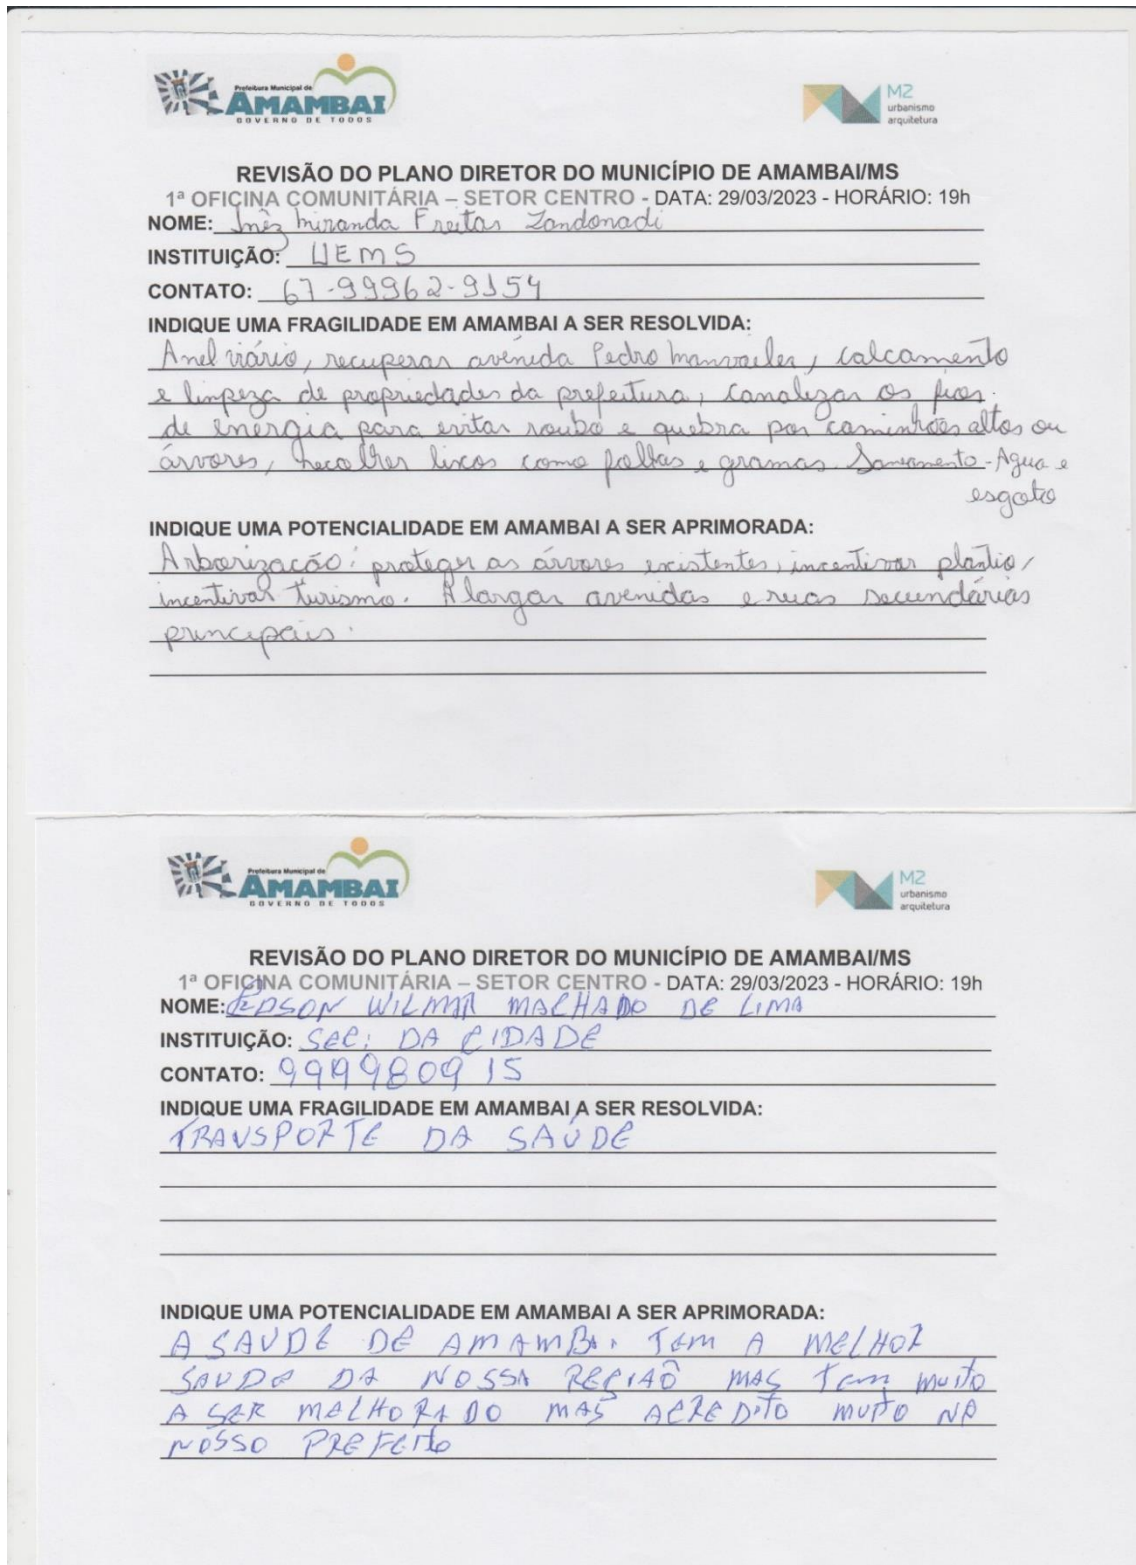 Prefeitura Municipal de
AMAMBAI
GOVERNO DE TODOS
M2
urbanismo
arquitetura
REVISÃO DO PLANO DIRETOR DO MUNICÍPIO DE AMAMBAI/MS
1ª OFICINA COMUNITÁRIA – SETOR CENTRO - DATA: 29/03/2023 - HORÁRIO: 19h
NOME: Inêz Miranda Freitas Zandonadi
INSTITUIÇÃO: UEMS
CONTATO: 67-99962-9154
INDIQUE UMA FRAGILIDADE EM AMAMBAI A SER RESOLVIDA:
Anel viário, recuperar avenida Pedro Manvailer, calcamento
e limpeza de propriedades da prefeitura, canalizar os fios
de energia para evitar roubo e quebra por caminhões altos ou
árvores, recolher lixos como folhas e gramas. Saneamento - Água e
esgoto
INDIQUE UMA POTENCIALIDADE EM AMAMBAI A SER APRIMORADA:
Arborização: proteger as árvores existentes, incentivar plantio,
incentivar turismo. Alargar avenidas e ruas secundárias
principais.
Prefeitura Municipal de
AMAMBAI
GOVERNO DE TODOS
M2
urbanismo
arquitetura
REVISÃO DO PLANO DIRETOR DO MUNICÍPIO DE AMAMBAI/MS
1ª OFICINA COMUNITÁRIA – SETOR CENTRO - DATA: 29/03/2023 - HORÁRIO: 19h
NOME: EDSON WILMAR MACHADO DE LIMA
INSTITUIÇÃO: SEC. DA CIDADE
CONTATO: 999980915
INDIQUE UMA FRAGILIDADE EM AMAMBAI A SER RESOLVIDA:
TRANSPORTE DA SAÚDE
INDIQUE UMA POTENCIALIDADE EM AMAMBAI A SER APRIMORADA:
A SAUDE DE AMAMBAI TEM A MELHOR
SAUDE DA NOSSA REGIAÔ MAS TEM MUITO
A SER MELHORADO MAS ACREDITO MUITO NO
NOSSO PREFEITO